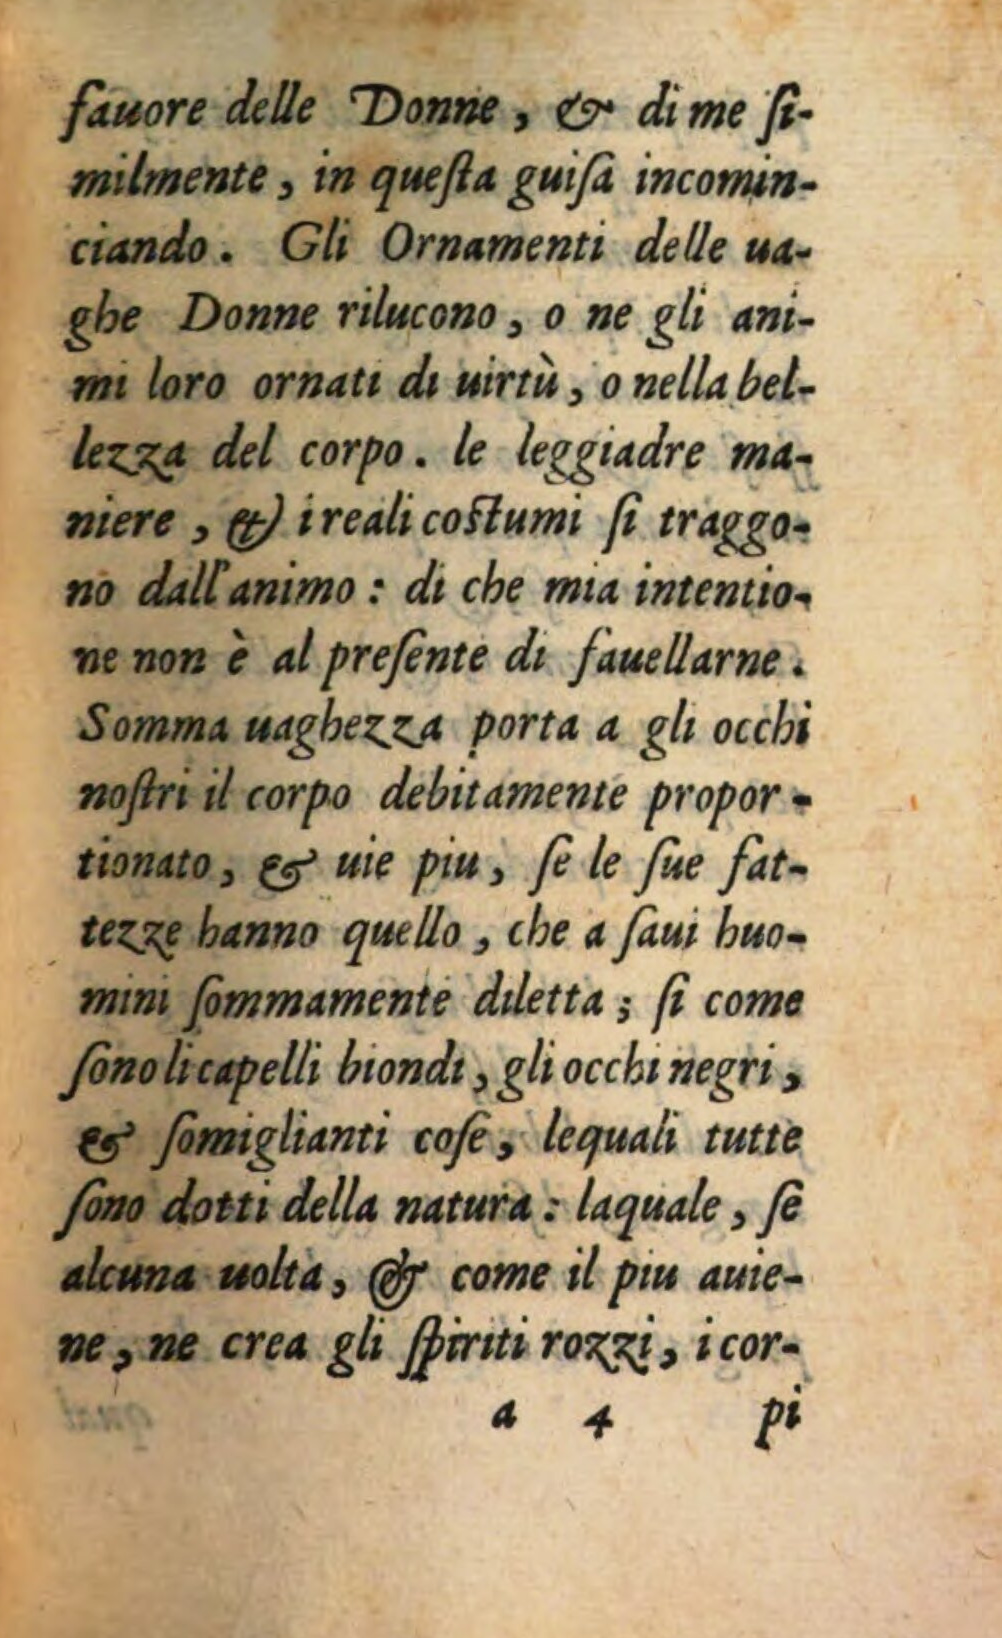 fauore delle Donne, & di me ſi-
milmente, in queſta guiſa incomin-
ciando. Gli Ornamenti delle ua-
ghe Donne rilucono, o ne gli ani-
mi loro ornati di uirtù, o nella bel-
lezza del corpo. le leggiadre ma-
niere, & i reali coſtumi ſi traggo-
no dall'animo: di che mia intentio-
ne non è al preſente di fauellarne.
Somma uaghezza porta a gli occhi
noſtri il corpo debitamente propor-
tionato, & uie piu, ſe le ſue fat-
tezze hanno quello, che a ſaui huo-
mini ſommamente diletta; ſi come
ſono li capelli biondi, gli occhi negri,
& ſomiglianti coſe, lequali tutte
ſono dotti della natura: laquale, ſe
alcuna uolta, & come il piu auie-
ne, ne crea gli ſpiriti rozzi, i cor-
a 4 pi